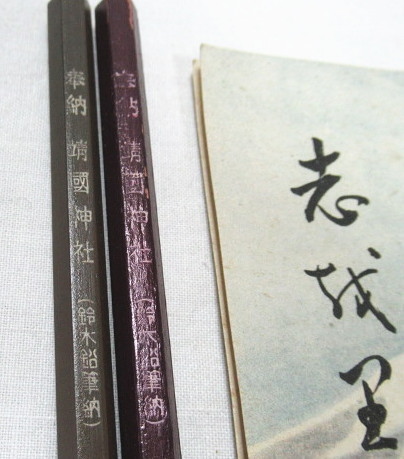 奉納 靖國神社 (鈴木鉛筆納)
奉納 靖國神社 (鈴木鉛筆納)
志越里